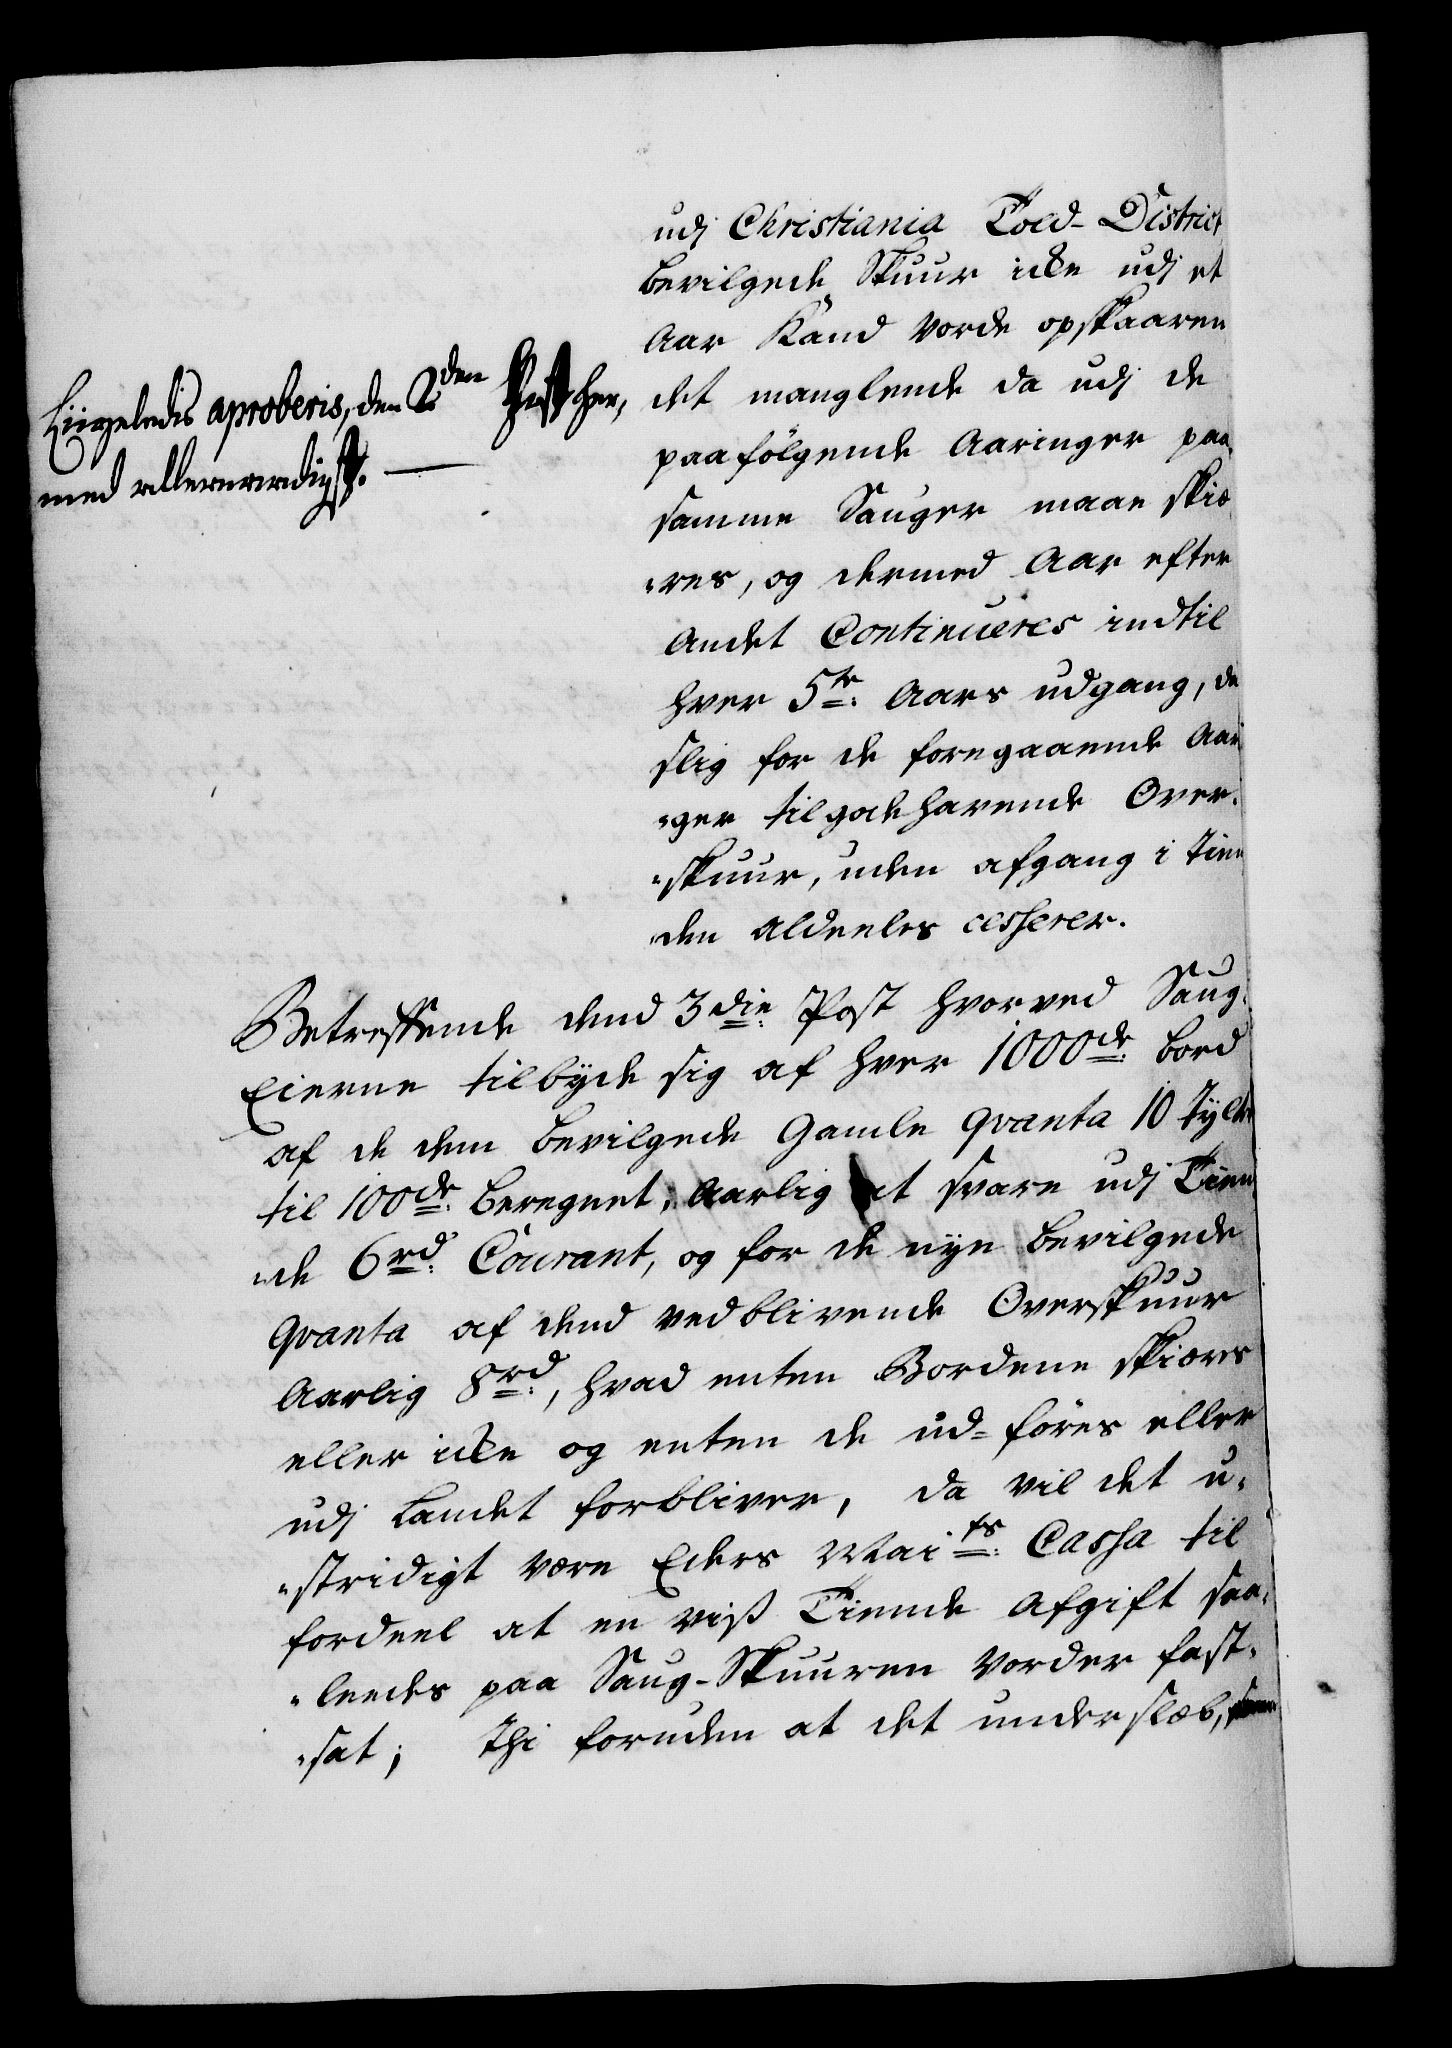 udj Christiania Told-District
bevilgede Skuur icke udj et
Aar Kand vorde opskaaren
det manglende da udj de
paafølgende Aaringer paa
samme Sauger maae skiæ
res, og dermed Aar efter
Andet Continueres indtil
hver 5te Aars udgang, da
slig for de foregaaende Aarin
ger tilgodehavende Over-
skuur, uden afgang i Tien
den aldeeles cesserer.
Liigeledis aproberis, den 2den Post her,
med allernaadigst.
Betreffende dend 3die Post hvorved Saug-
Eierne tilbyde sig af hver 1000de bord
af de dem bevilgede Gamle qvanta 10 Tylter
til 100de beregnet, Aarlig at svare udj Tien
de 6rd Courant, og for de nye bevilgede
qvanta af dend vedblivende Overskuur
Aarlig 8rd, hvad enten Bordene skiæres
eller icke og enten de ud-føres eller
udj Landet forbliver, da vil det u-
stridigt være Eders Maits Cassa til
fordeel at en viss Tiende Afgift saa-
leedes paa Saug-Skuuren vorder fast-
sat; Thi foruden at det underslæb, som